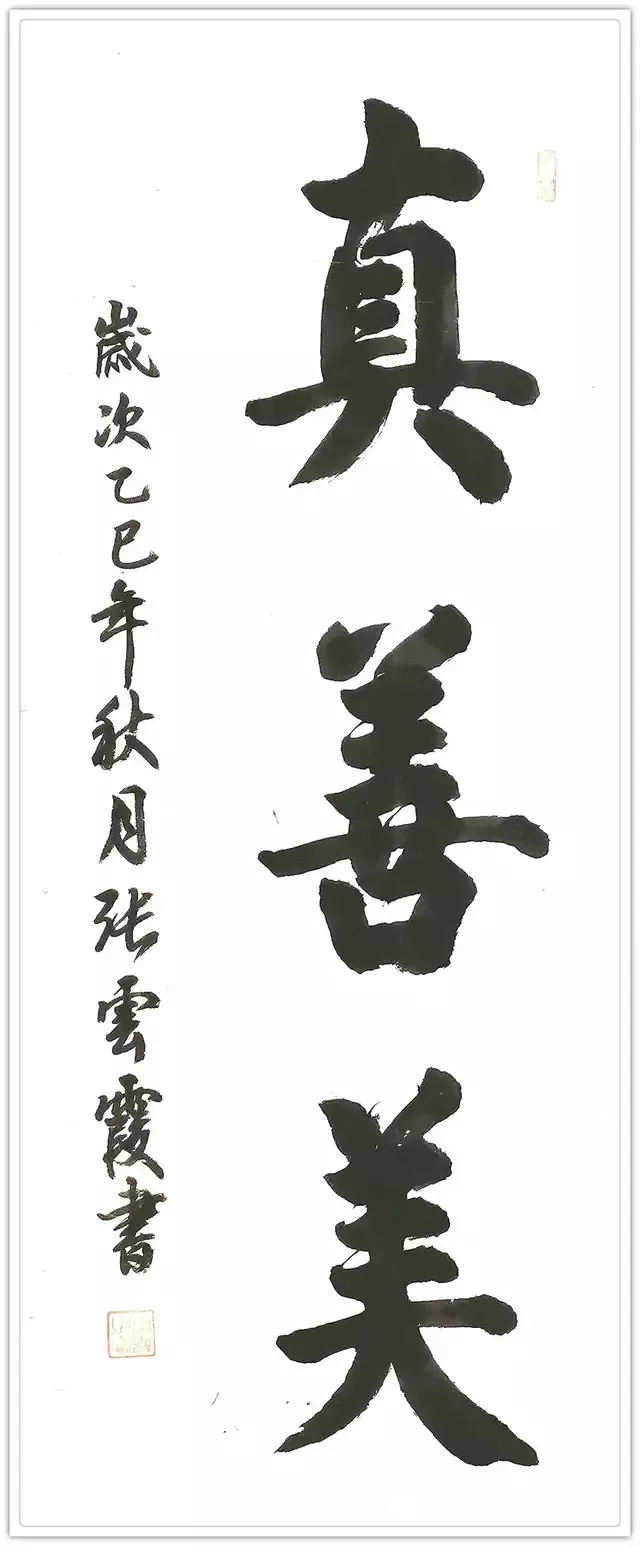 真善美
歲次乙巳年秋月张雲霞書